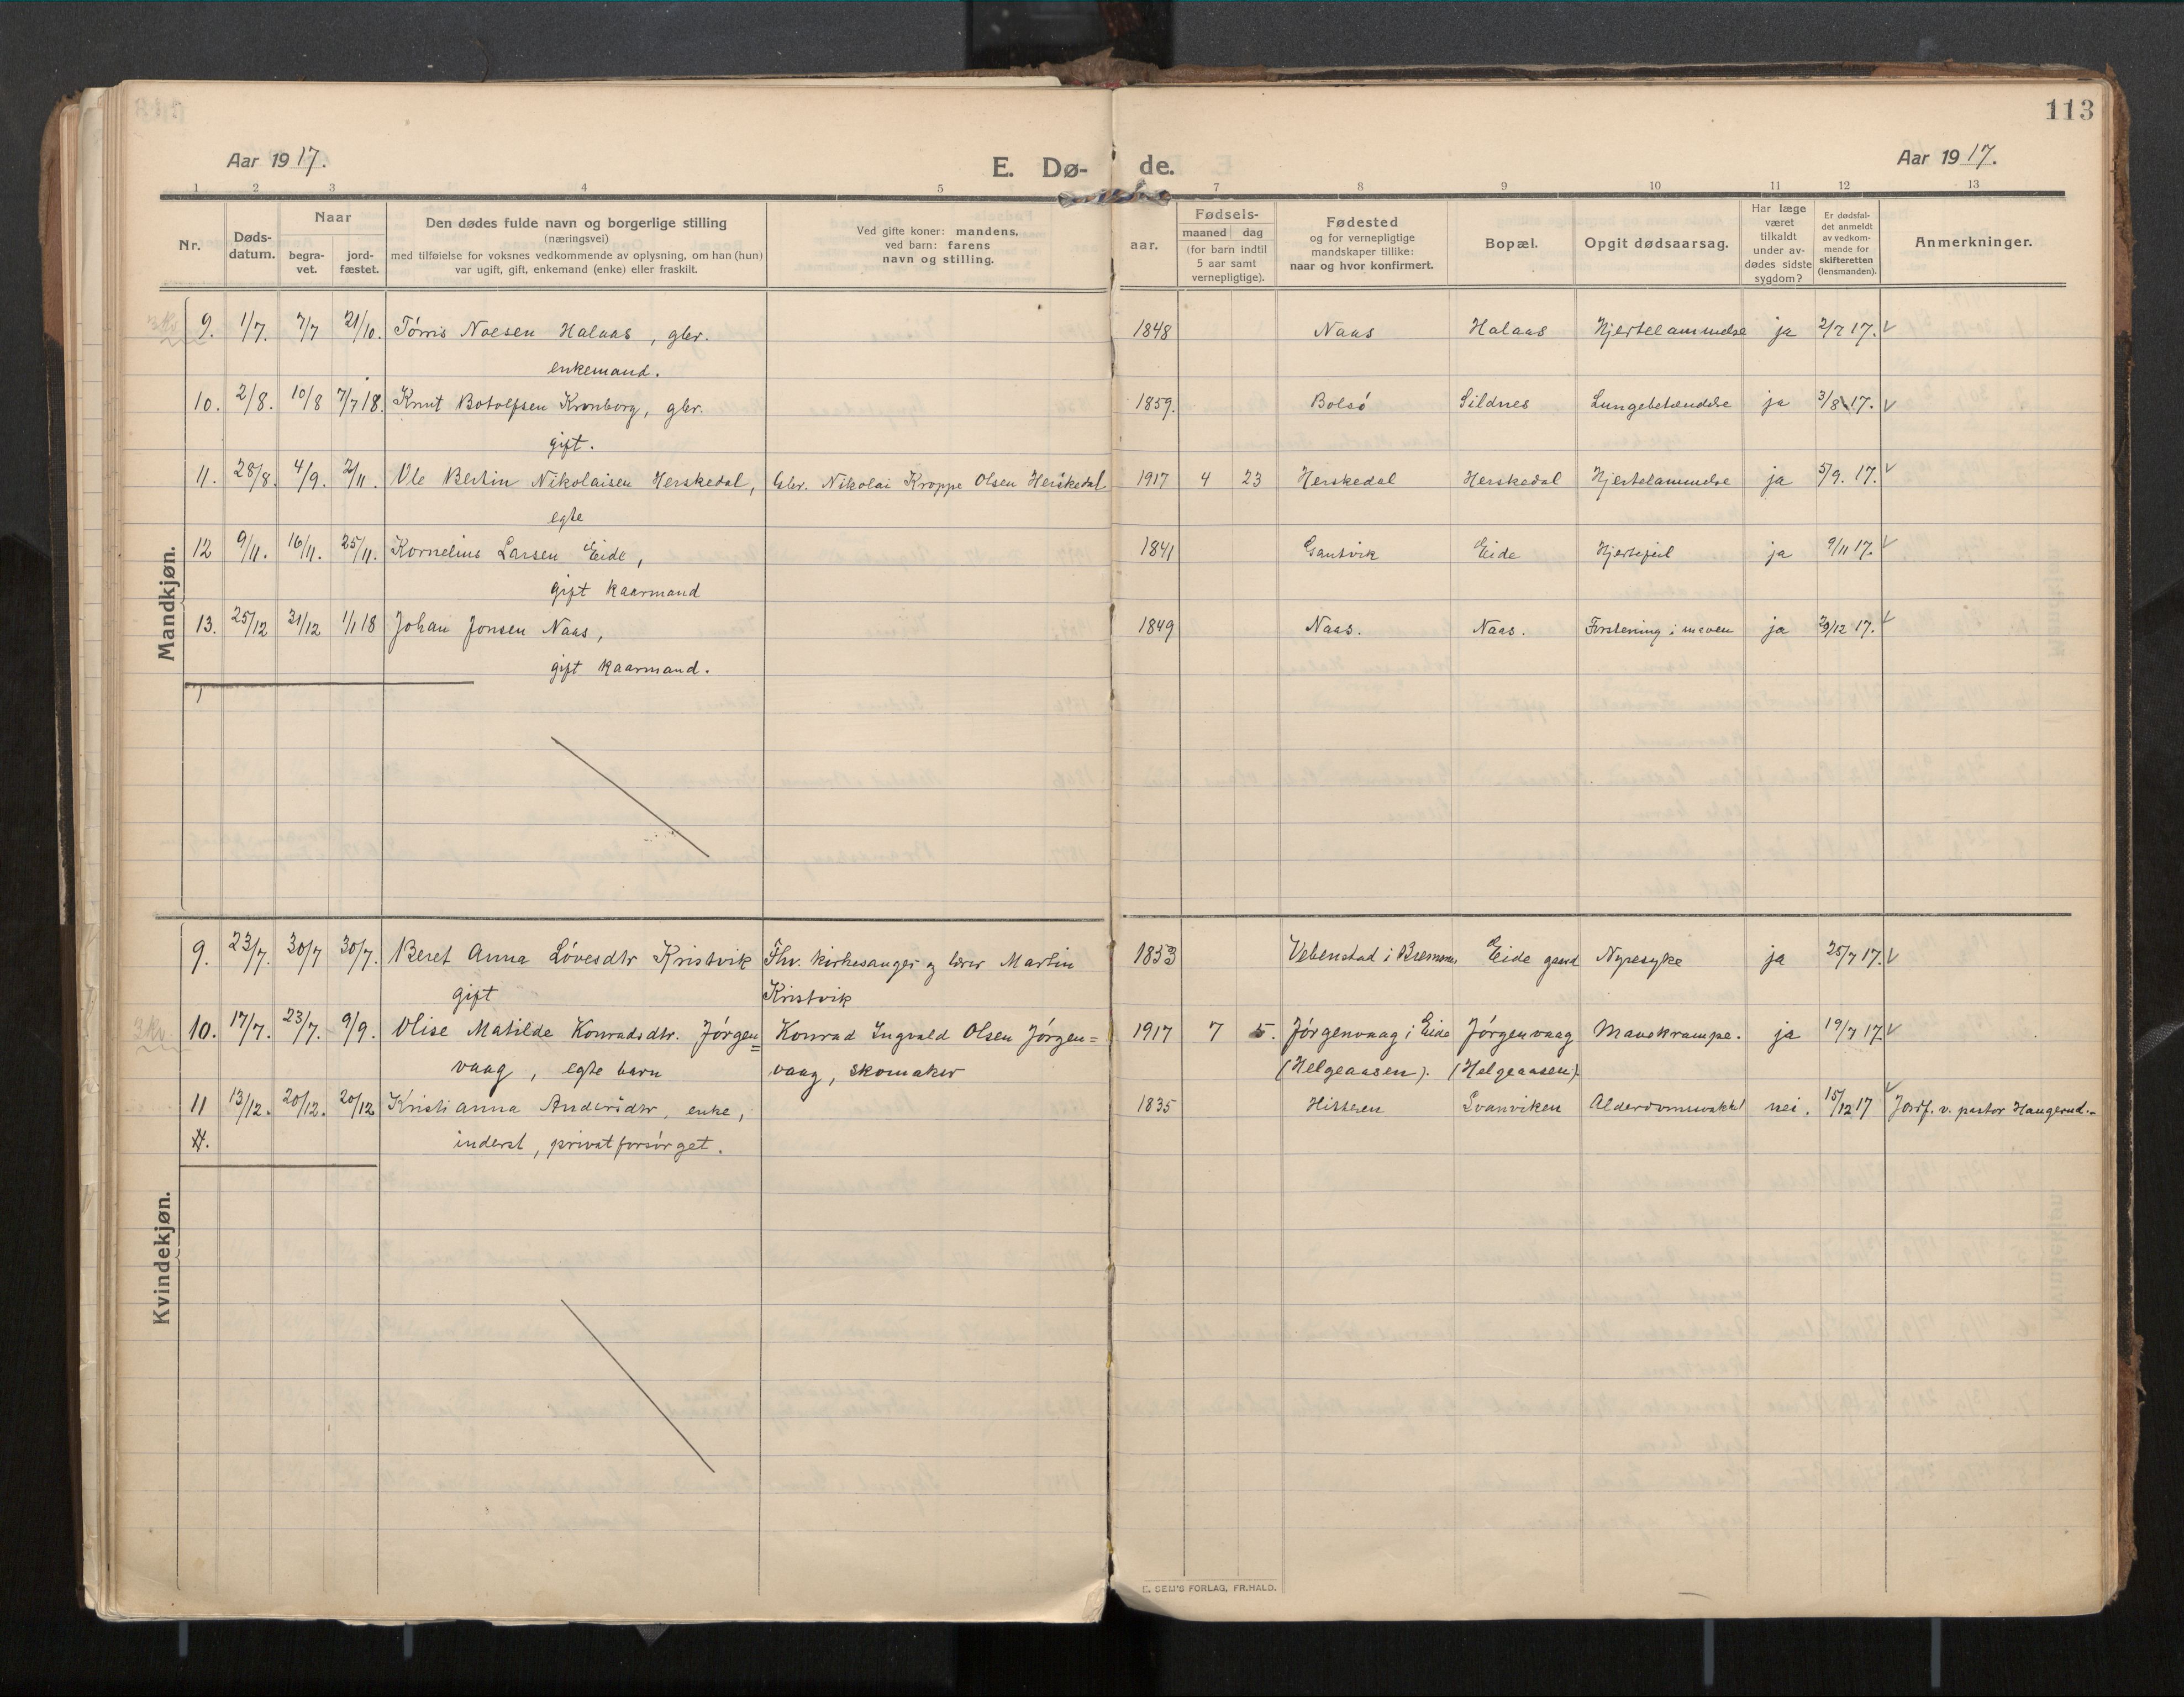 113
Aar 1917.
E. Dø-
de.
Aar 1917.
1 2 3 4 5 7 8 9 10 11 12 13
Nr.
Døds-
datum.
Naar
begra-
vet.
jord-
fæstet.
Den dødes fulde navn og borgerlige stilling
(næringsvei)
med tilføielse for voksnes vedkommende av oplysning, om han (hun)
var ugift, gift, enkemand (enke) eller fraskilt.
Ved gifte koner: mandens,
ved barn: farens
navn og stilling.
aar.
Fødsels-
maaned dag
(for barn indtil
5 aar samt
vernepligtige).
Fødested
og for vernepligtige
mandskaper tillike:
naar og hvor konfirmert.
Bopæl.
Opgit dødsaarsag.
Har læge
været
tilkaldt
under av-
dødes sidste
sygdom?
Er dødsfal-
det anmeldt
av vedkom-
mende for
skifteretten
(lensmanden).
Anmerkninger.
Mandkjøn.
9. 1/7. 7/7 21/10. Tørris Noesen Halaas, gbr. 1848 Naas Halaas Hjertelammelse ja 2/7 17. ✓
enkemand.
10. 2/8. 10/8 7/7 18. Knut Botolfsen Kronborg, gbr. 1859. Bolsø Sildnes Lungebetændelse ja 3/8 17. ✓
gift.
11. 28/8. 4/9. 2/11. Ole Bertin Nikolaisen Herskedal, Gbr. Nikolai Kroppe Olsen Herskedal 1917 4 23 Herskedal Herskedal Hjertelammelse ja 5/9. 17. ✓
egte
12 9/11. 16/11. 25/11. Kornelius Larsen Eide, 1841 Gautvik Eide Hjertefeil ja 9/11 17. ✓
gift kaarmand
13. 25/12 31/12 1/1 18 Johan Jonsen Naas, 1849 Naas. Naas. Forstening i maven ja 29/12 17. ✓
gift kaarmand.
Kvindekjøn.
9. 23/7. 30/7 30/7. Beret Anna Løvesdtr Kristvik Fhv. kirkesanger og lærer Martin 1833 Vebenstad i Bremsnes Eide gaard Nyresyke ja 25/7 17. ✓
gift Kristvik
10. 17/7. 23/7. 9/9. Olise Matilde Konradsdtr. Jørgen= Konrad Ingvald Olsen Jørgen= 1917 7 5. Jørgenvaag i Eide Jørgenvaag Mavekrampe. ja 19/7 17. ✓
vaag, egte barn vaag, skomaker (Helgeaasen). (Helgeaasen).
11 13/12. 20/12. 20/12 Kristianna Andersdtr, enke, 1835 Hissen Svanviken Alderdomssvakhet nei. 15/12 17 ✓ Jordf. v. pastor Haugerud.-
inderst, privat forsørget.
E. SEM'S FORLAG, FR.HALD.